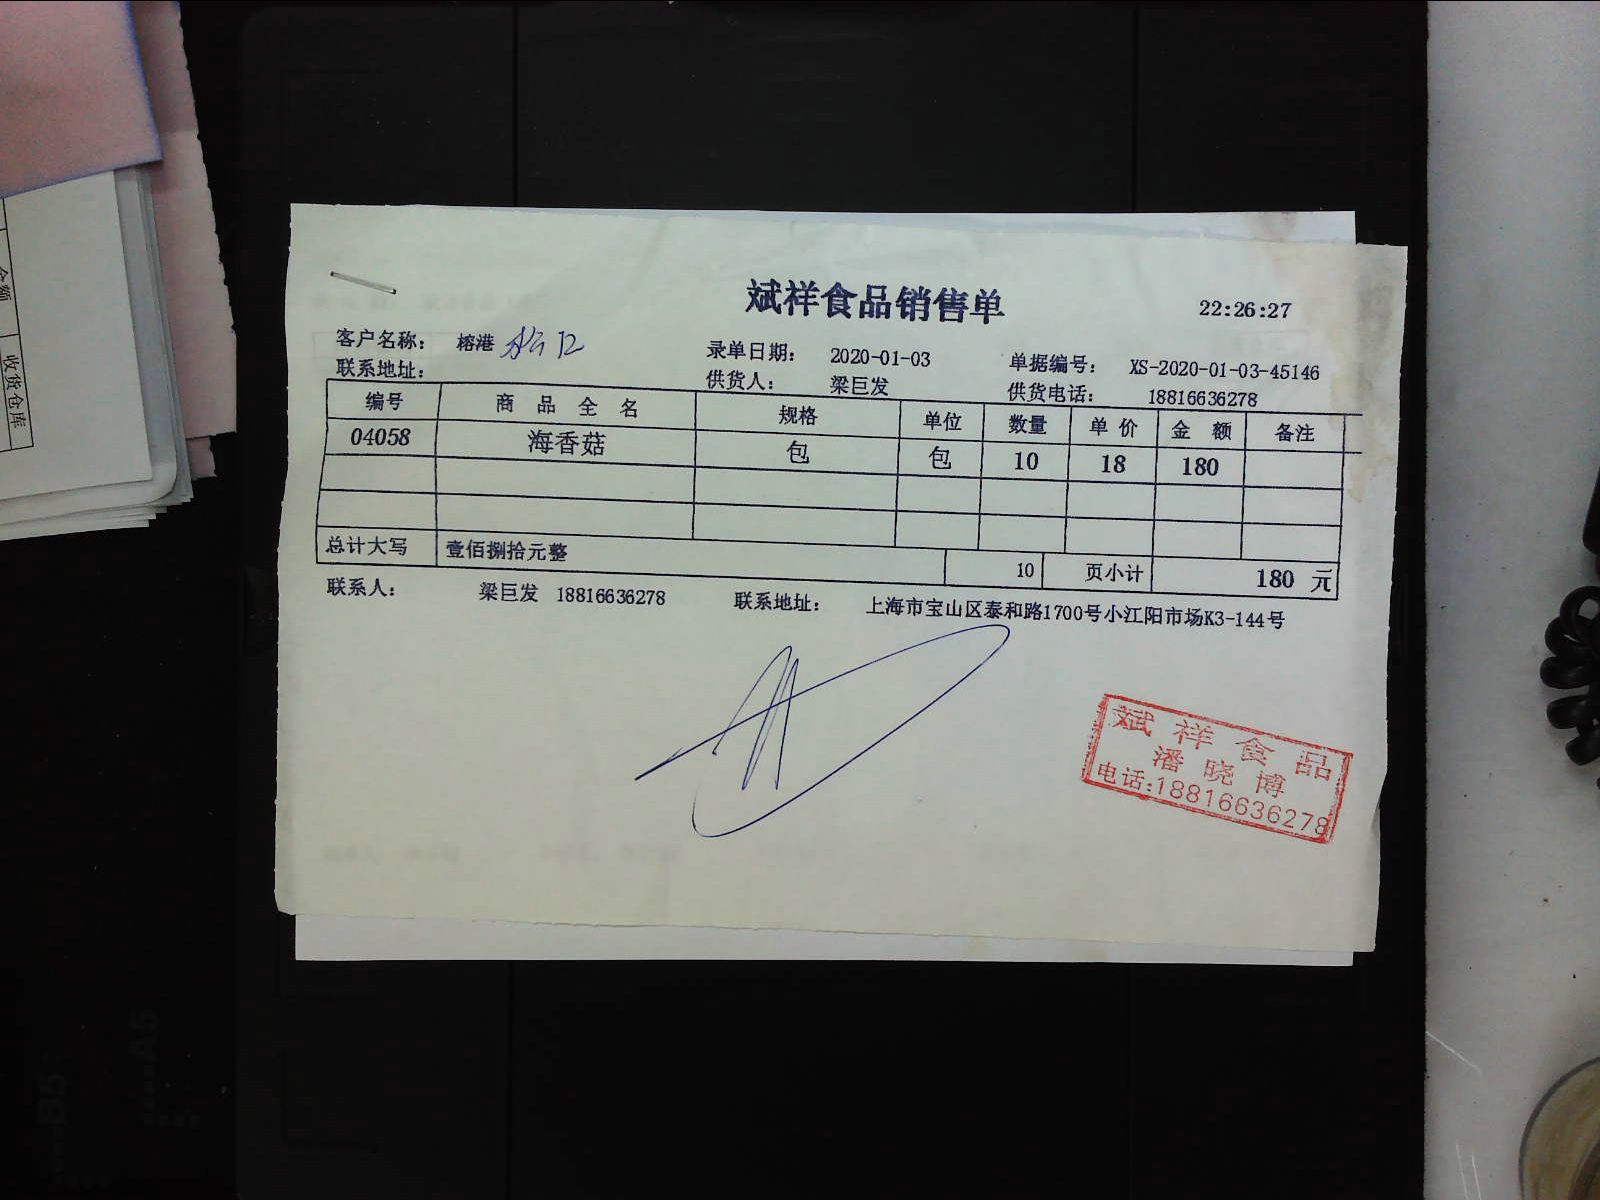 斌祥食品销售单
22:26:27
客户名称： 榕港 松江
录单日期： 2020-01-03
单据编号： XS-2020-01-03-45146
联系地址：
供货人： 梁巨发
供货电话： 18816636278
编号 商品全名 规格 单位 数量 单价 金额 备注
04058 海香菇 包 包 10 18 180
总计大写 壹佰捌拾元整 10 页小计 180 元
联系人： 梁巨发 18816636278 联系地址： 上海市宝山区泰和路1700号小江阳市场K3-144号
斌祥食品
潘晓博
电话:18816636278
金额
收货仓库
A5
B5